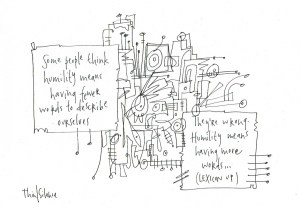 Some people think
humility means
having fewer
words to describe
ourselves
They're wrong.
Humility means
having more
words...
(LEXICON UP)